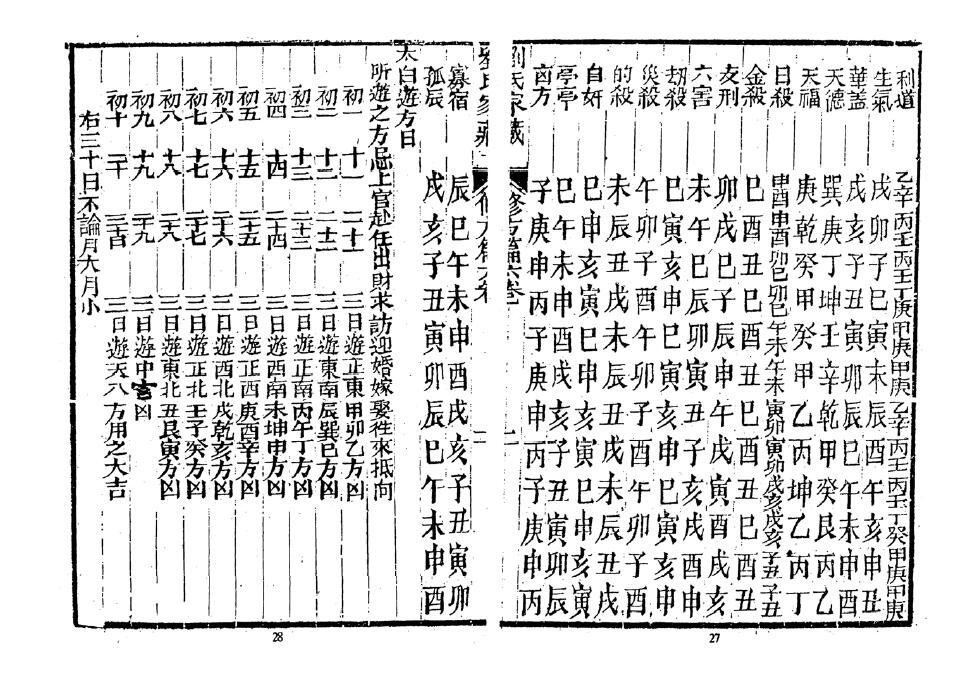 利道　乙辛丙壬丙壬丁庚甲庚甲庚乙辛丙壬丙壬丁癸甲庚甲庚
生氣　戌卯子巳寅未辰酉午亥申丑
華蓋　戌亥子丑寅卯辰巳午未申酉
天德　巽庚丁坤壬辛乾甲癸艮丙乙
天福　庚乾癸甲癸甲乙丙坤乙丙丁
日殺　申酉申酉卯巳卯巳午未午未寅卯寅卯戌亥戌亥子丑子丑
金殺　巳酉丑巳酉丑巳酉丑巳酉丑
亥刑　卯戌巳子辰申午戌寅酉戌亥
六害　未午巳辰卯寅丑子亥戌酉申
劫殺　巳寅亥申巳寅亥申巳寅亥申
災殺　午卯子酉午卯子酉午卯子酉
的殺　未辰丑戌未辰丑戌未辰丑戌
自奸　巳申亥寅巳申亥寅巳申亥寅
亭亭　巳午未申酉戌亥子丑寅卯辰
凶方　子庚申丙子庚申丙子庚申丙
劉氏家藏　修方篇六卷
27
寡宿　辰巳午未申酉戌亥子丑寅卯
孤辰　戌亥子丑寅卯辰巳午未申酉
太白遊方日
所遊之方忌上官赴任出財求訪迎婚嫁娶徃來抵向
初一　十一　二十一　三日遊正東甲卯乙方凶
初二　十二　二十二　三日遊東南辰巽巳方凶
初三　十三　二十三　三日遊正南丙午丁方凶
初四　十四　二十四　三日遊西南未坤申方凶
初五　十五　二十五　三日遊正西庚酉辛方凶
初六　十六　二十六　三日遊西北戌乾亥方凶
初七　十七　二十七　三日遊正北壬子癸方凶
初八　十八　二十八　三日遊東北丑艮寅方凶
初九　十九　二十九　三日遊中宮凶
初十　二十　三十日　三日遊天八方用之大吉
右三十日不論月大月小
28